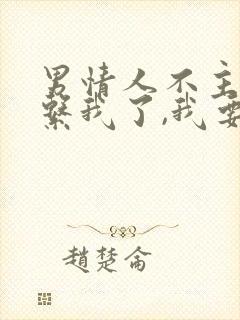 男情人不主
繫我了,我要
趙楚侖